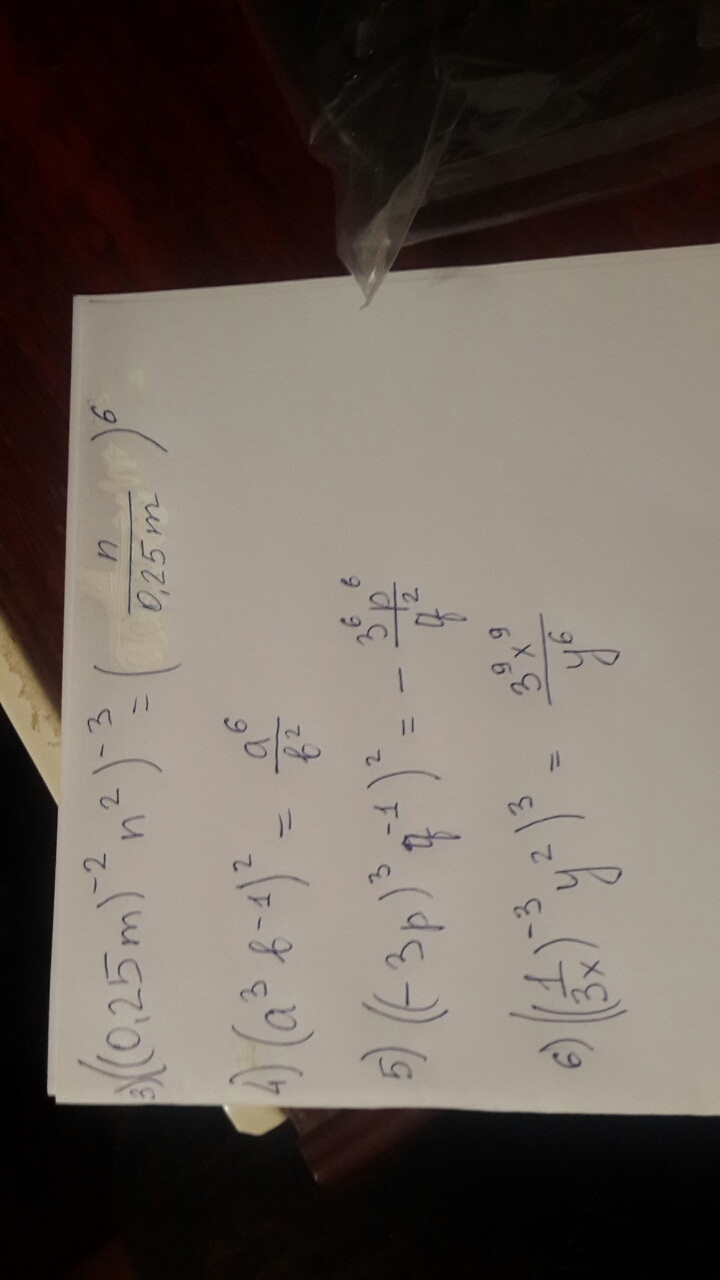 3) ((0,25m)^-2 n^2)^-3 = (n/0,25m)^6
4) (a^3 b^-1)^2 = a^6/b^2
5) ((-3p)^3 q^-1)^2 = - 3^6 p^6/q^2
6) ((1/3x)^-3 y^2)^3 = 3^9 x^9/y^6